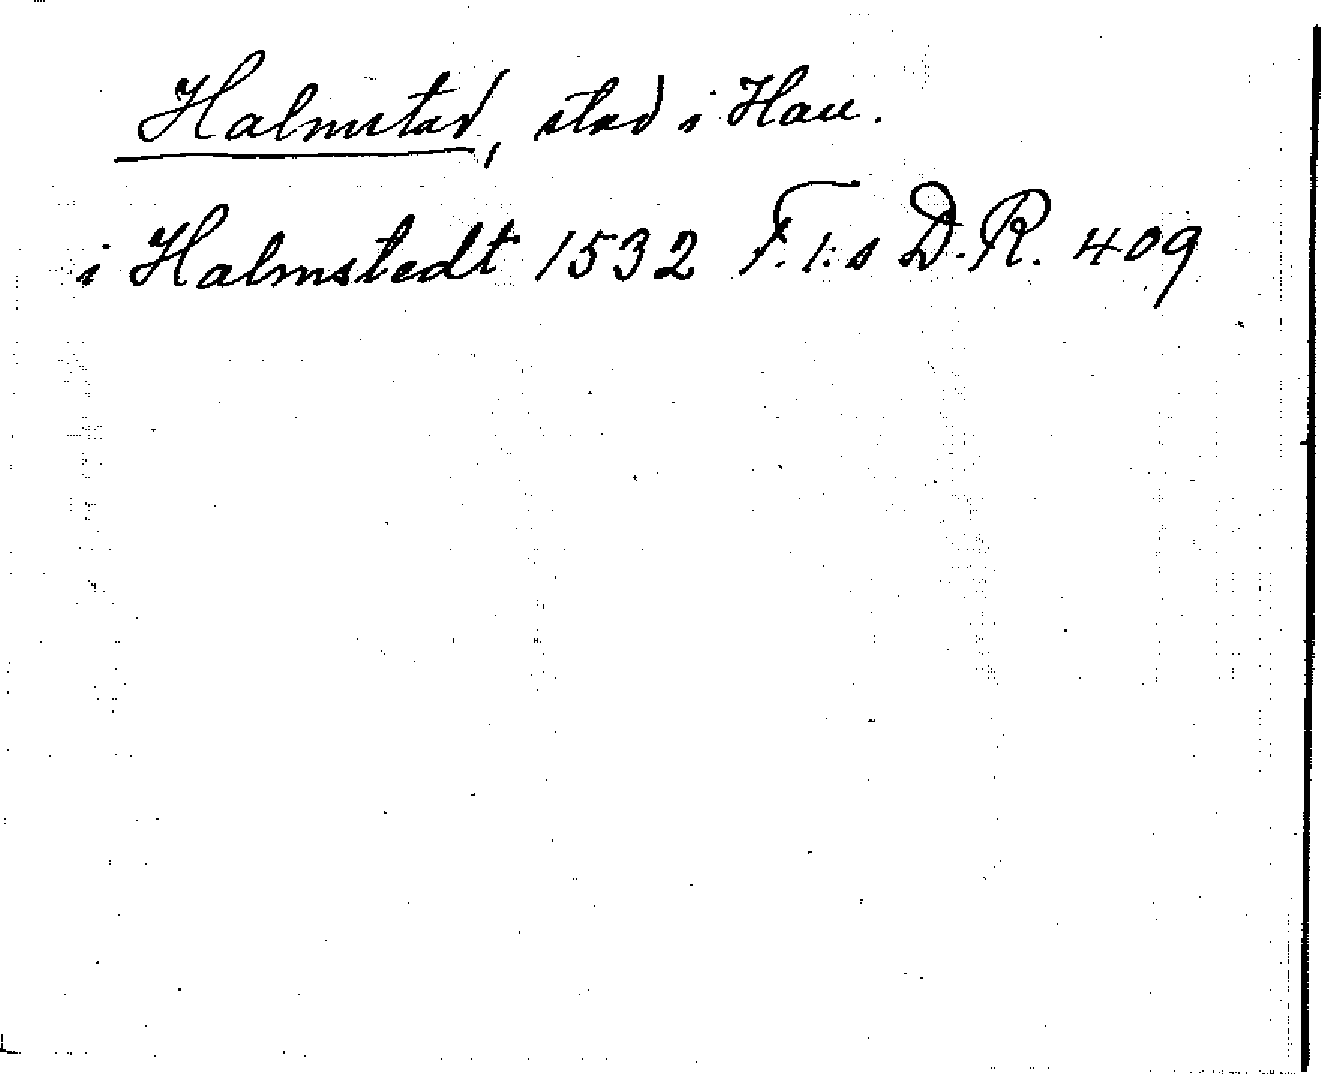 Halmstad, stad i Hall.
i Halmstedt 1532 F. I:s D.R. 409